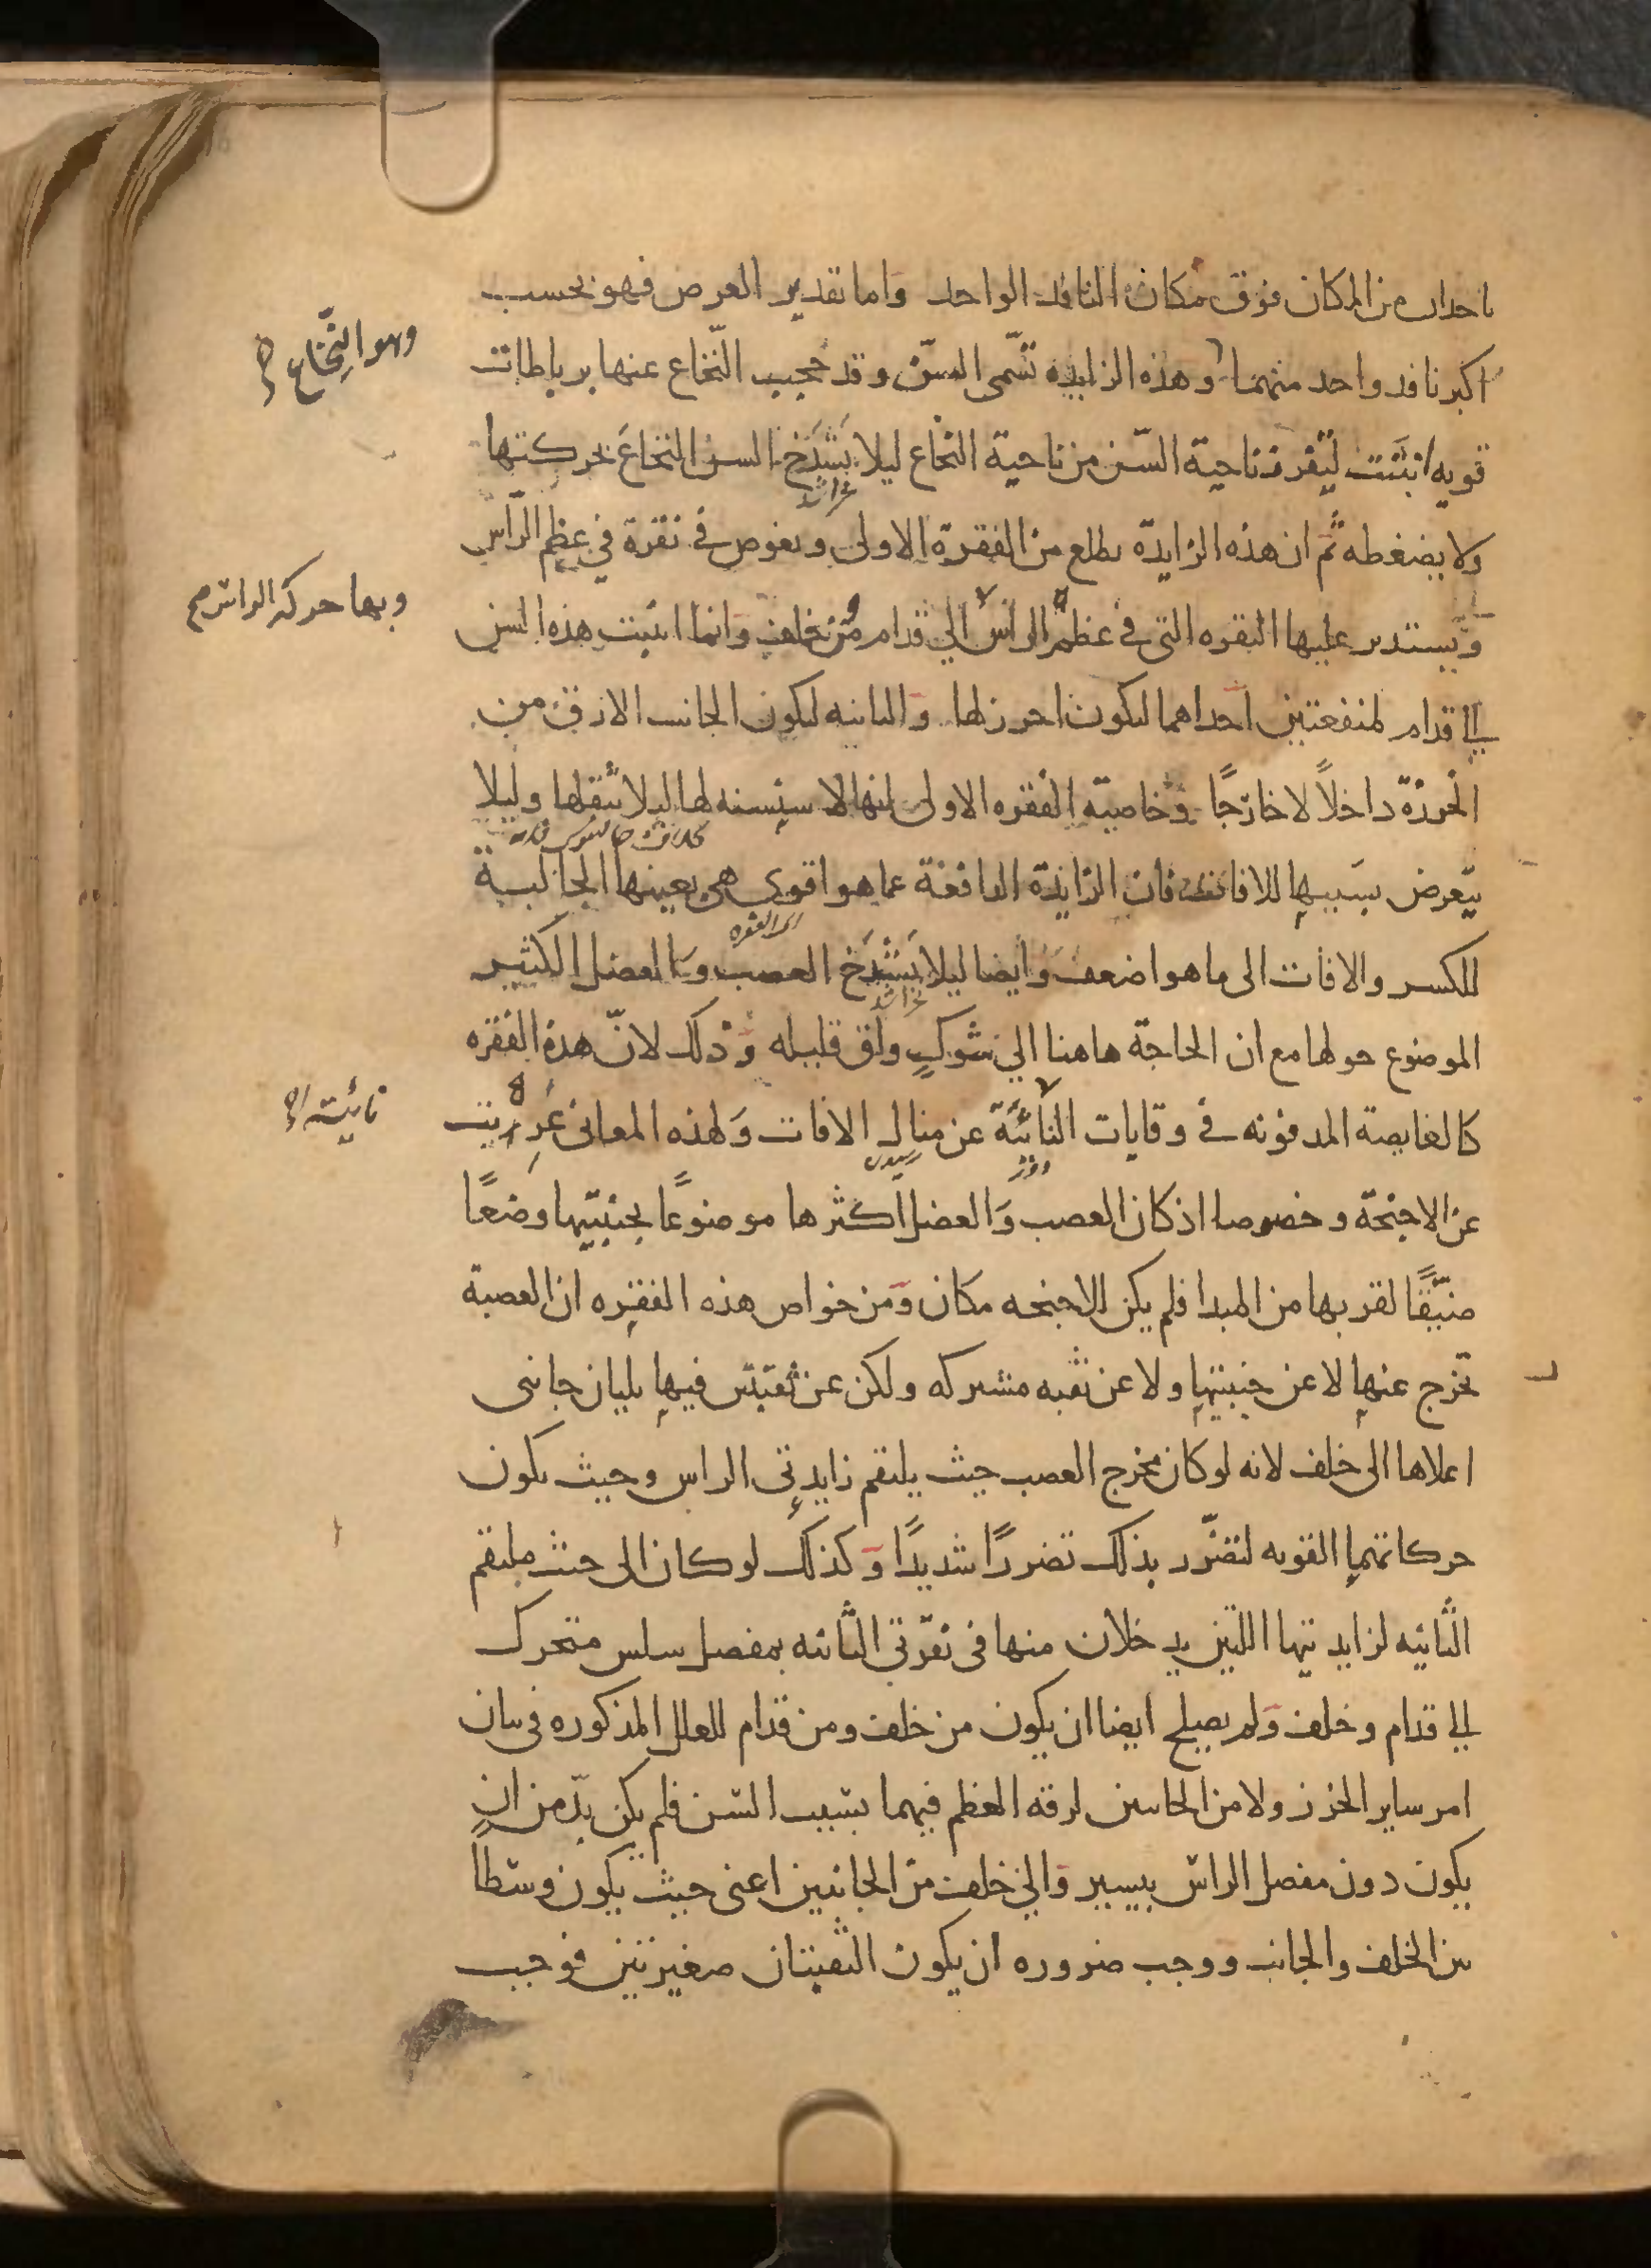 ياخدان من المكان فوق مكان النافد الواحد واما تقدير العرض فهو بحسب
اكبر نافد واحد منهما وهذه الزايدة تسمى السن وقد حجب النخاع عنها برباطات
وهو النخاع صح
قويه انبتت ليفرز ناحية السن من ناحية النخاع ليلا يشدخ السن النخاع بحركتها
ولا يضغطه ثم ان هذه الزايدة يطلع من الفقرة الاولى ويغوص في نقرة في عظم الراس
ويستدير عليها النقره التى فى عظم الراس الي قدام من خلف وانما انبتت هذه السن
وبها حركة الراس صح
الي قدام لمنفعتين احداهما ليكون احرز لها والثانيه ليكون الجانب الارق من
الخرزة داخلاً لا خارجًا وخاصية الفقره الاولى انها لا سنسنه لها ليلا يثقلها وليلا
يتعرض بسببها للافات فان الزايدة الدافعة عما هو اقوى هى بعينها الجالبة
للكسر والافات الى ما هو اضعف وايضا ليلا يشدخ العصب والعضل الكثير
الموضوع حولها مع ان الحاجة هاهنا الي شوك واق قليله وذلك لان هذه الفقره
كالغايصة المدفونه في وقايات النائية عن منال الافات ولهذه المعانى عريت
نائية صح
عن الاجنحة وخصوصا اذ كان العصب والعضل اكثرها موضوعًا بجنبتيها وضعًا
ضيقًا لقربها من المبدا فلم يكن للاجنحه مكان ومن خواص هذه الفقره ان العصبة
تخرج عنها لا عن جنبتيها ولا عن ثقبه مشتركه ولكن عن ثقبتين فيها يليان جانبى
اعلاها الى خلف لانه لو كان مخرج العصب حيث يلتقم زايدتي الراس وحيث يكون
حركاتهما القويه لتضرر بذلك تضررًا شديدًا وكذلك لو كان الى حيث ملتقم
الثانيه لزايدتيها اللتين يدخلان منها فى نقرتي الثانيه بمفصل سلس متحرك
الي قدام وخلف ولم يصلح ايضا ان يكون من خلف ومن قدام للعلل المذكوره فى بيان
امر ساير الخرز ولا من الجانبين لرقه العظم فيهما بسبب السن فلم يكن بد من ان
يكون دون مفصل الراس بيسير والي خلف من الجانبين اعنى حيث يكون وسطا
بين الخلف والجانب ووجب ضروره ان يكون الثقبتان صغيرتين فوجب